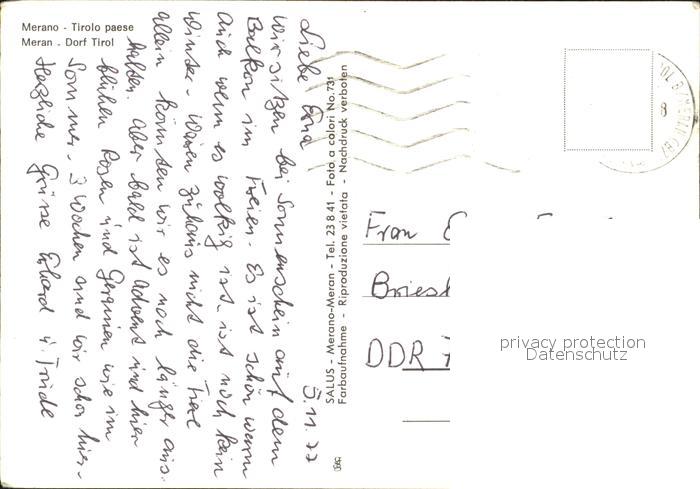 Merano - Tirolo paese
Meran - Dorf Tirol
5.11.77
Liebe Erna
Wir sitzen bei Sonnenschein auf dem
Balkon im Freien. Es ist schön warm
auch wenn es wolkig ist, ist noch kein
Winter. Wären zuhaus nicht die Tiere
allein könnten wir es noch länger aus-
halten. Aber bald ist Advent und hier
blühen Rosen und Geranien wie im
Sommer. 3 Wochen sind wir schon hier.
Herzliche Grüsse Erhard u. Friede
SALUS - Merano-Meran - Tel. 23 8 41 - Foto a colori No. 731
Farbaufnahme - Riproduzione vietata - Nachdruck verboten
Frau E
Briest
DDR
privacy protection
Datenschutz